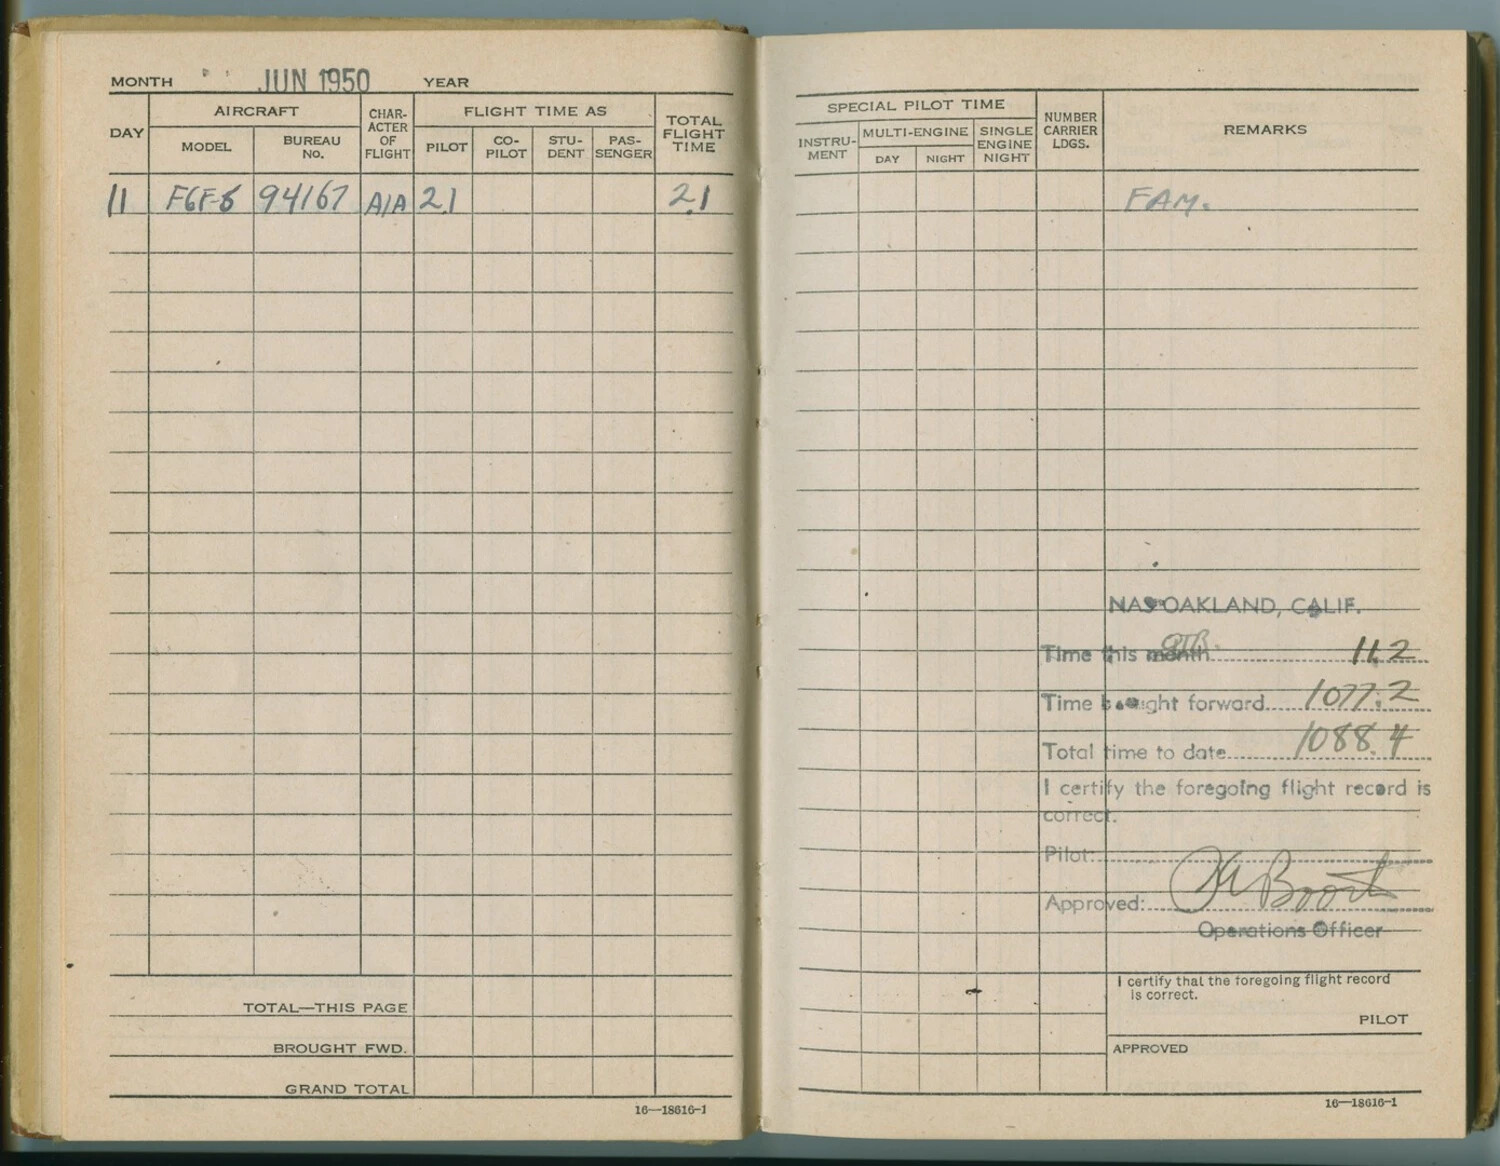 MONTH JUN 1950 YEAR
DAY AIRCRAFT CHAR-ACTER OF FLIGHT FLIGHT TIME AS TOTAL FLIGHT TIME
MODEL BUREAU No. PILOT CO-PILOT STU-DENT PAS-SENGER
11 F6F-5 94167 A1A 2.1 2.1
TOTAL—THIS PAGE
BROUGHT FWD.
GRAND TOTAL
16—18616-1
SPECIAL PILOT TIME NUMBER CARRIER LDGS. REMARKS
INSTRU-MENT MULTI-ENGINE SINGLE ENGINE NIGHT
DAY NIGHT
FAM.
NAS OAKLAND, CALIF.
Time this month QTR. 11.2
Time bought forward 1077.2
Total time to date 1088.4
I certify the foregoing flight record is
correct.
Pilot:
Approved:
Operations Officer
I certify that the foregoing flight record
is correct.
PILOT
APPROVED
16—18616-1